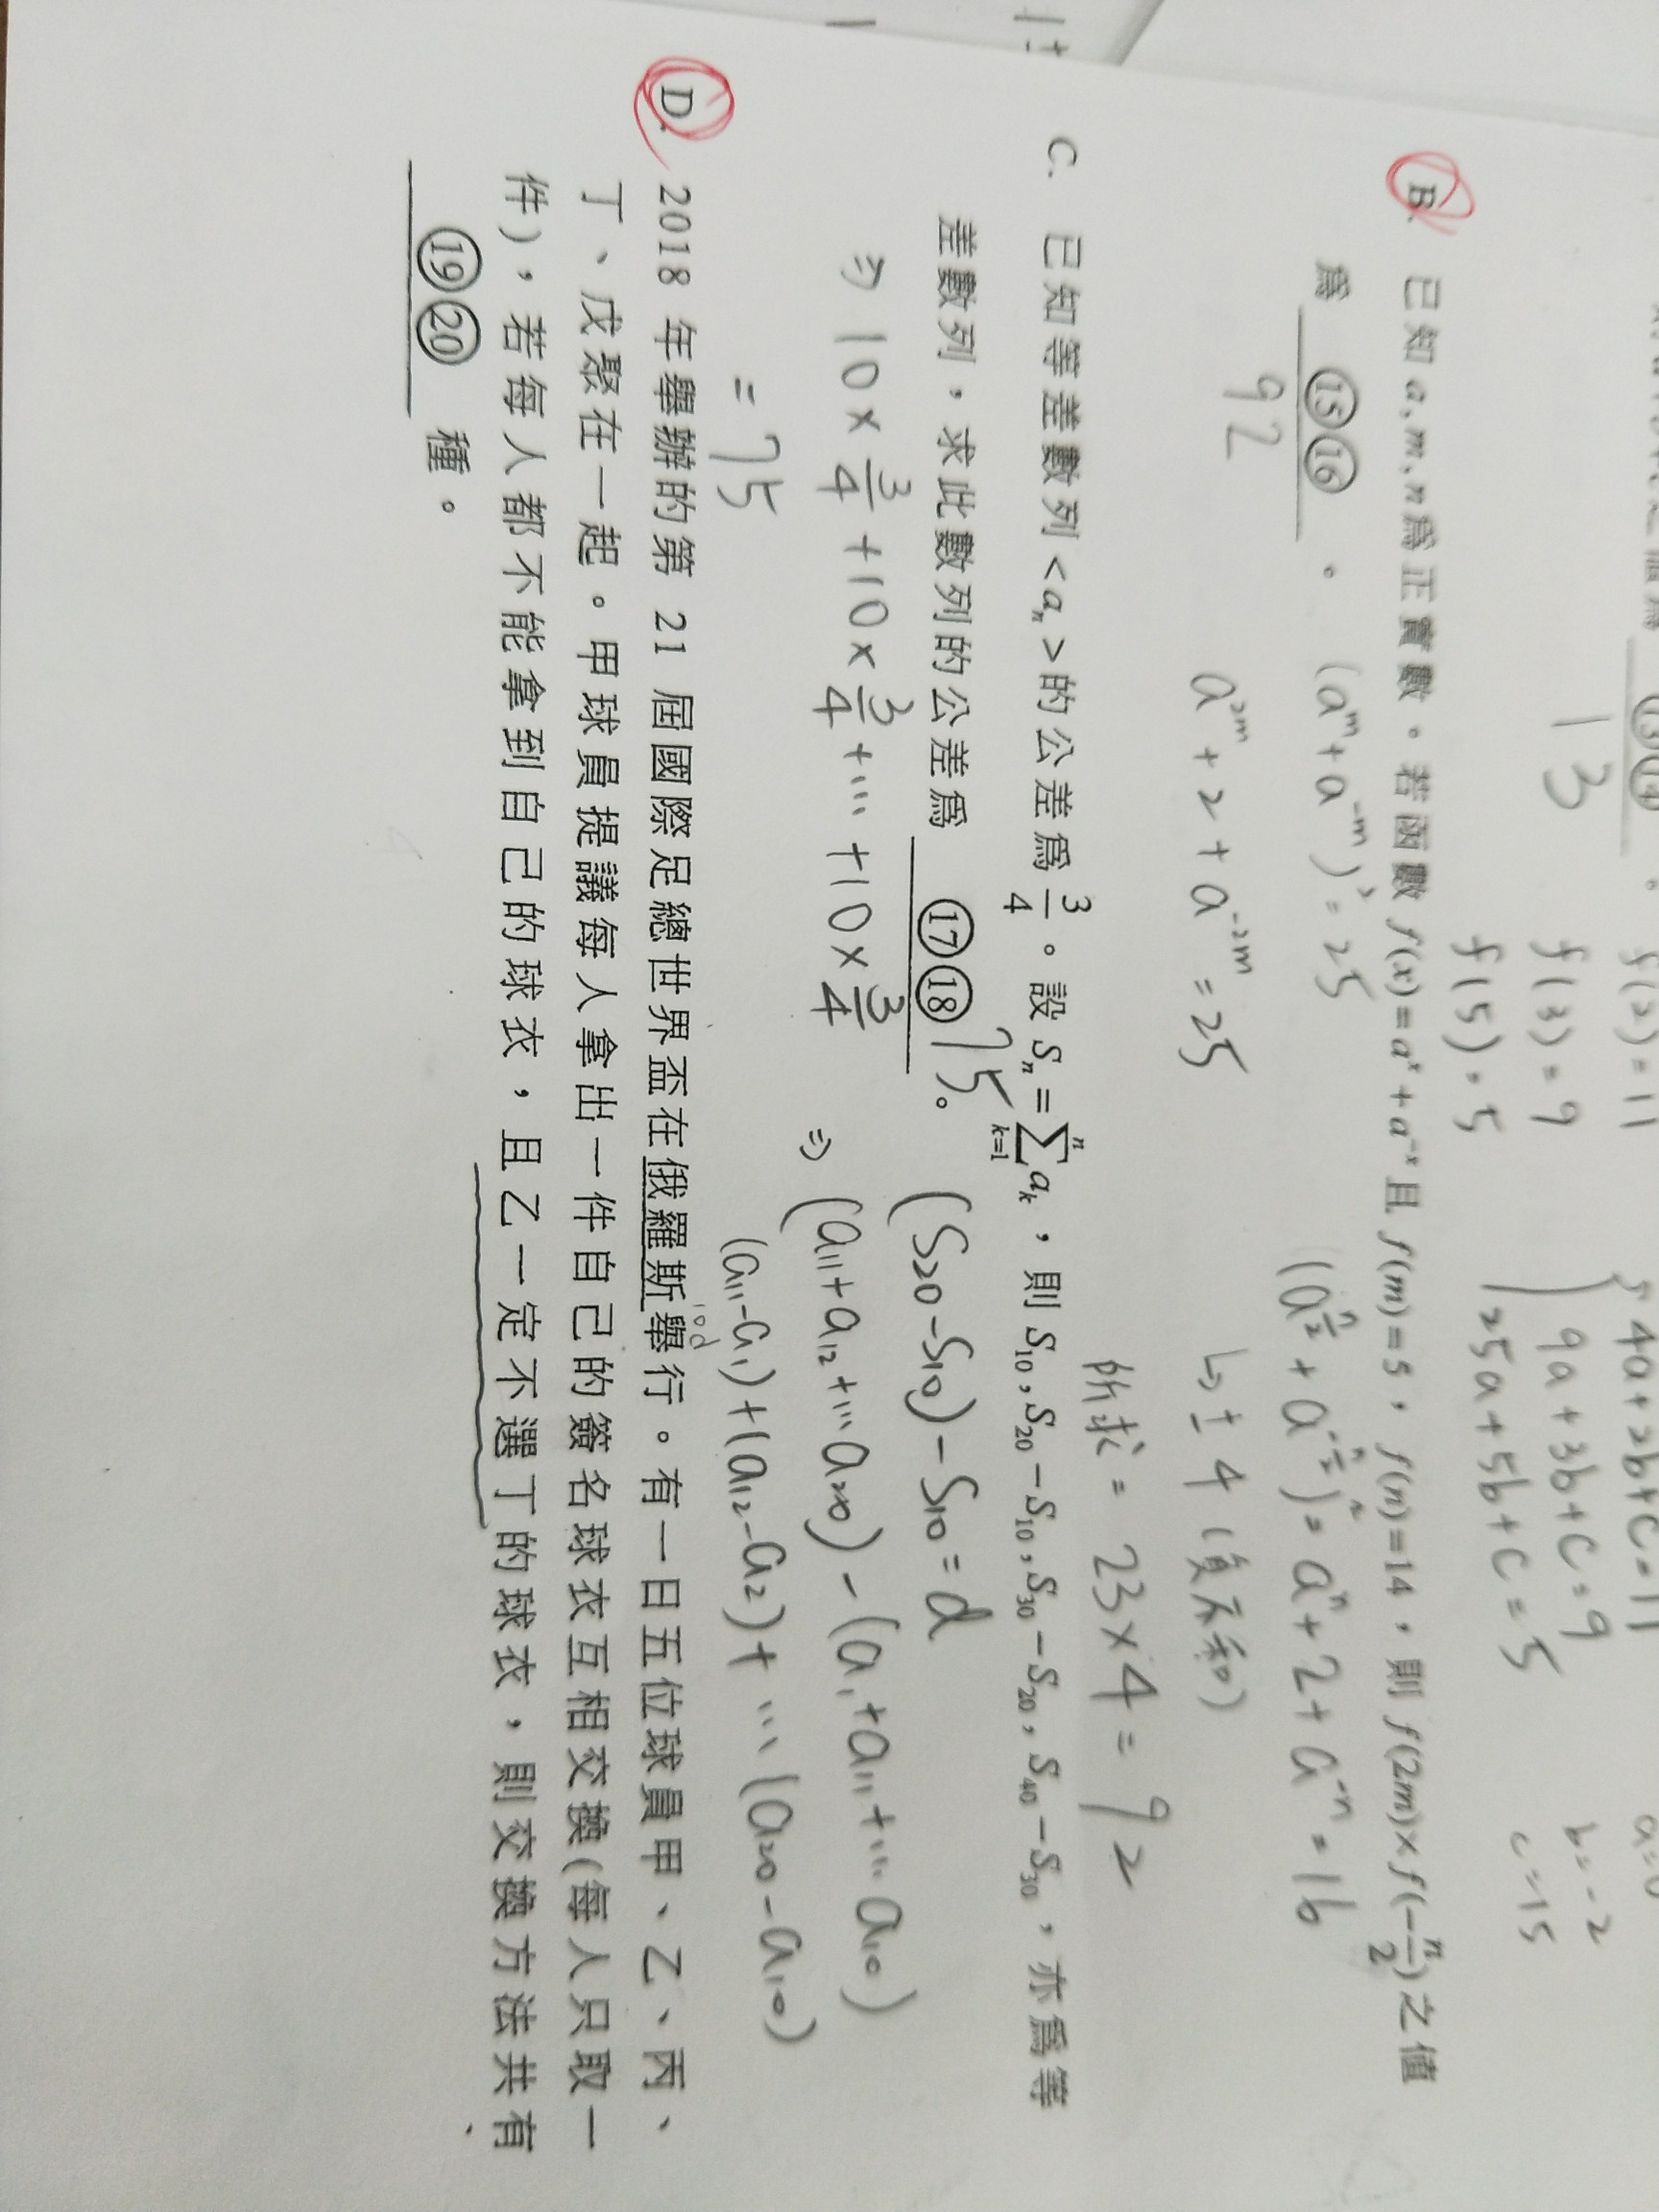 13
f(2)=11
f(3)=9
f(5)=5
4a+2b+c=11
9a+3b+c=9
25a+5b+c=5
b=-2
c=15
B. 已知 a、m、n 為正實數。若函數 f(x)=aˣ+a⁻ˣ 且 f(m)=5，f(n)=14，則 f(2m)×f(-n/2) 之值
為 ⑮⑯ 。
92
(aᵐ+a⁻ᵐ)²=25
a²ᵐ+2+a⁻²ᵐ=25
(a^(n/2)+a^(-n/2))²=aⁿ+2+a⁻ⁿ=16
↳ ±4 (負不和)
所求=23×4=92
C. 已知等差數列<aₙ>的公差為 3/4。設 Sₙ=∑ₖ₌₁ⁿ aₖ，則 S₁₀, S₂₀-S₁₀, S₃₀-S₂₀, S₄₀-S₃₀，亦為等
差數列，求此數列的公差為 ⑰⑱ 。
75
(S₂₀-S₁₀)-S₁₀=d
⇒ (a₁₁+a₁₂+…a₂₀)-(a₁+a₁₁+…a₁₀)
10d
(a₁₁-a₁)+(a₁₂-a₂)+…(a₂₀-a₁₀)
⇒ 10×3/4+10×3/4+…+10×3/4
=75
D. 2018 年舉辦的第 21 屆國際足總世界盃在俄羅斯舉行。有一日五位球員甲、乙、丙、
丁、戊聚在一起。甲球員提議每人拿出一件自己的簽名球衣互相交換(每人只取一
件)，若每人都不能拿到自己的球衣，且乙一定不選丁的球衣，則交換方法共有
⑲⑳ 種。